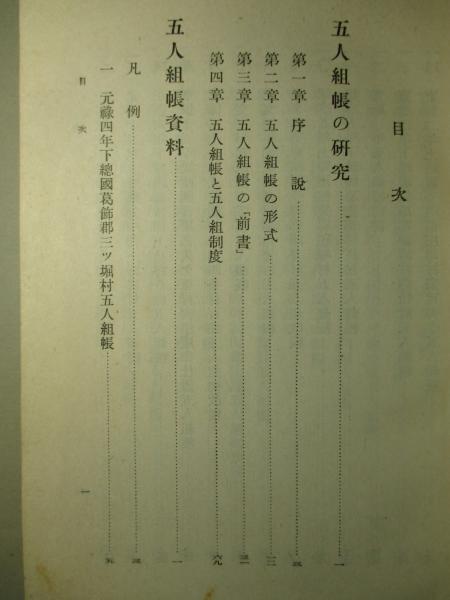 目次
五人組帳の研究……一
第一章 序說……三
第二章 五人組帳の形式……一三
第三章 五人組帳の「前書」……三一
第四章 五人組帳と五人組制度……六九
五人組帳資料……一
凡例……三
一 元祿四年下總國葛飾郡三ツ堀村五人組帳……五
目次
一